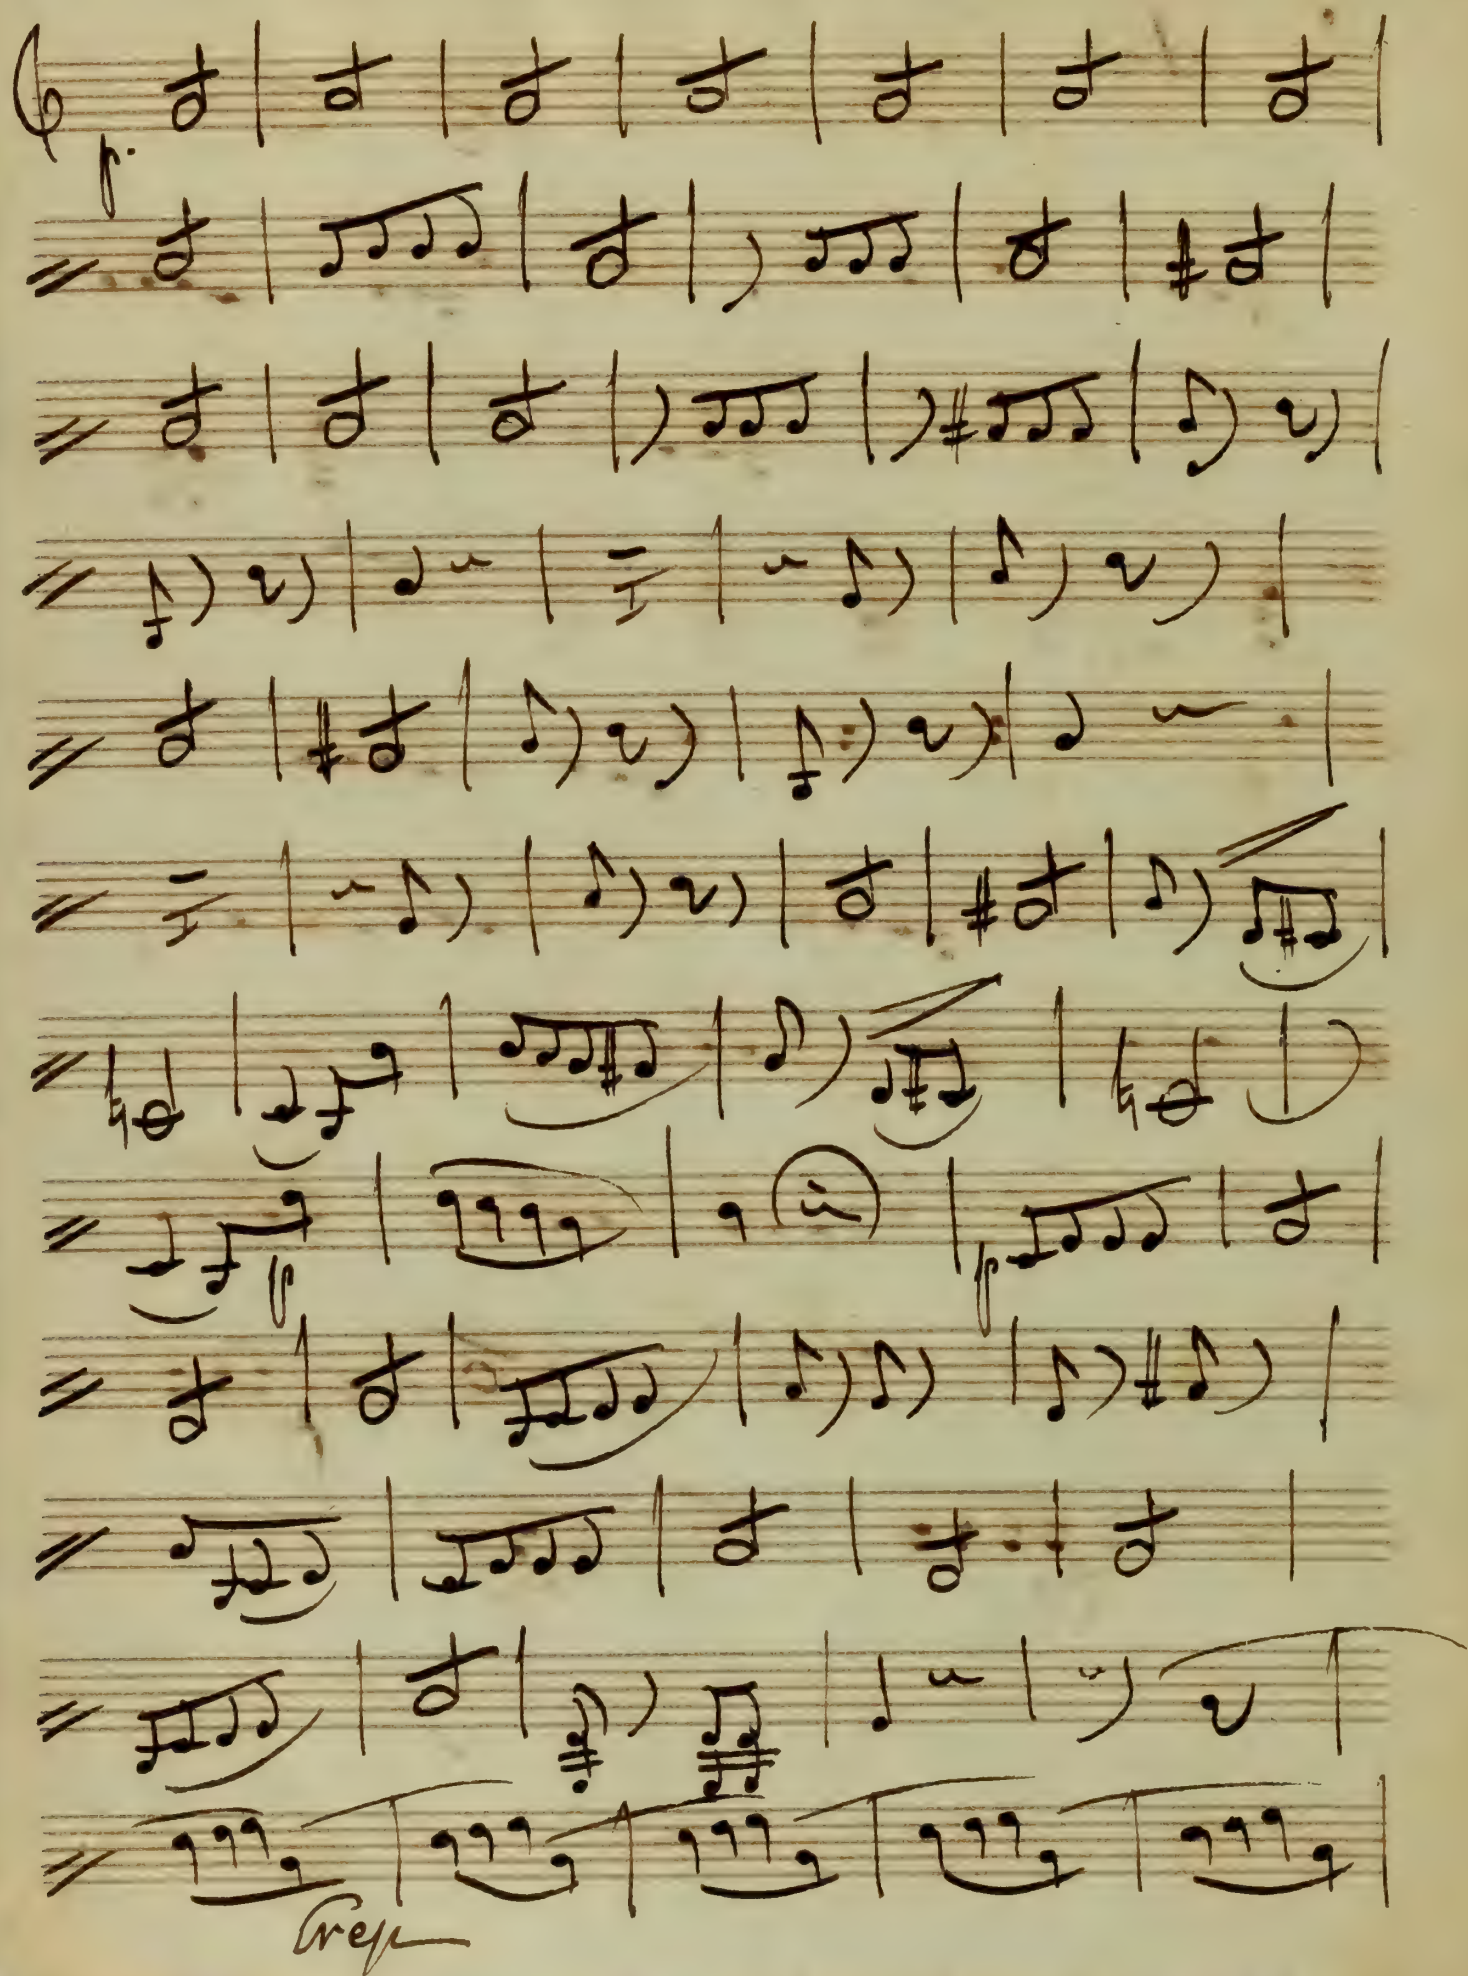 p.
p
p
Cresc